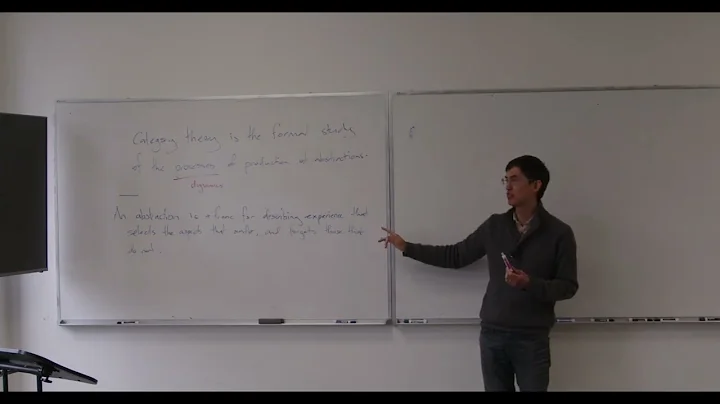 Category theory is the formal study
of the of production of abstractions.
diagrams
An abstraction is a frame for describing experience that
selects the aspects that matter, and forgets those that
do not.